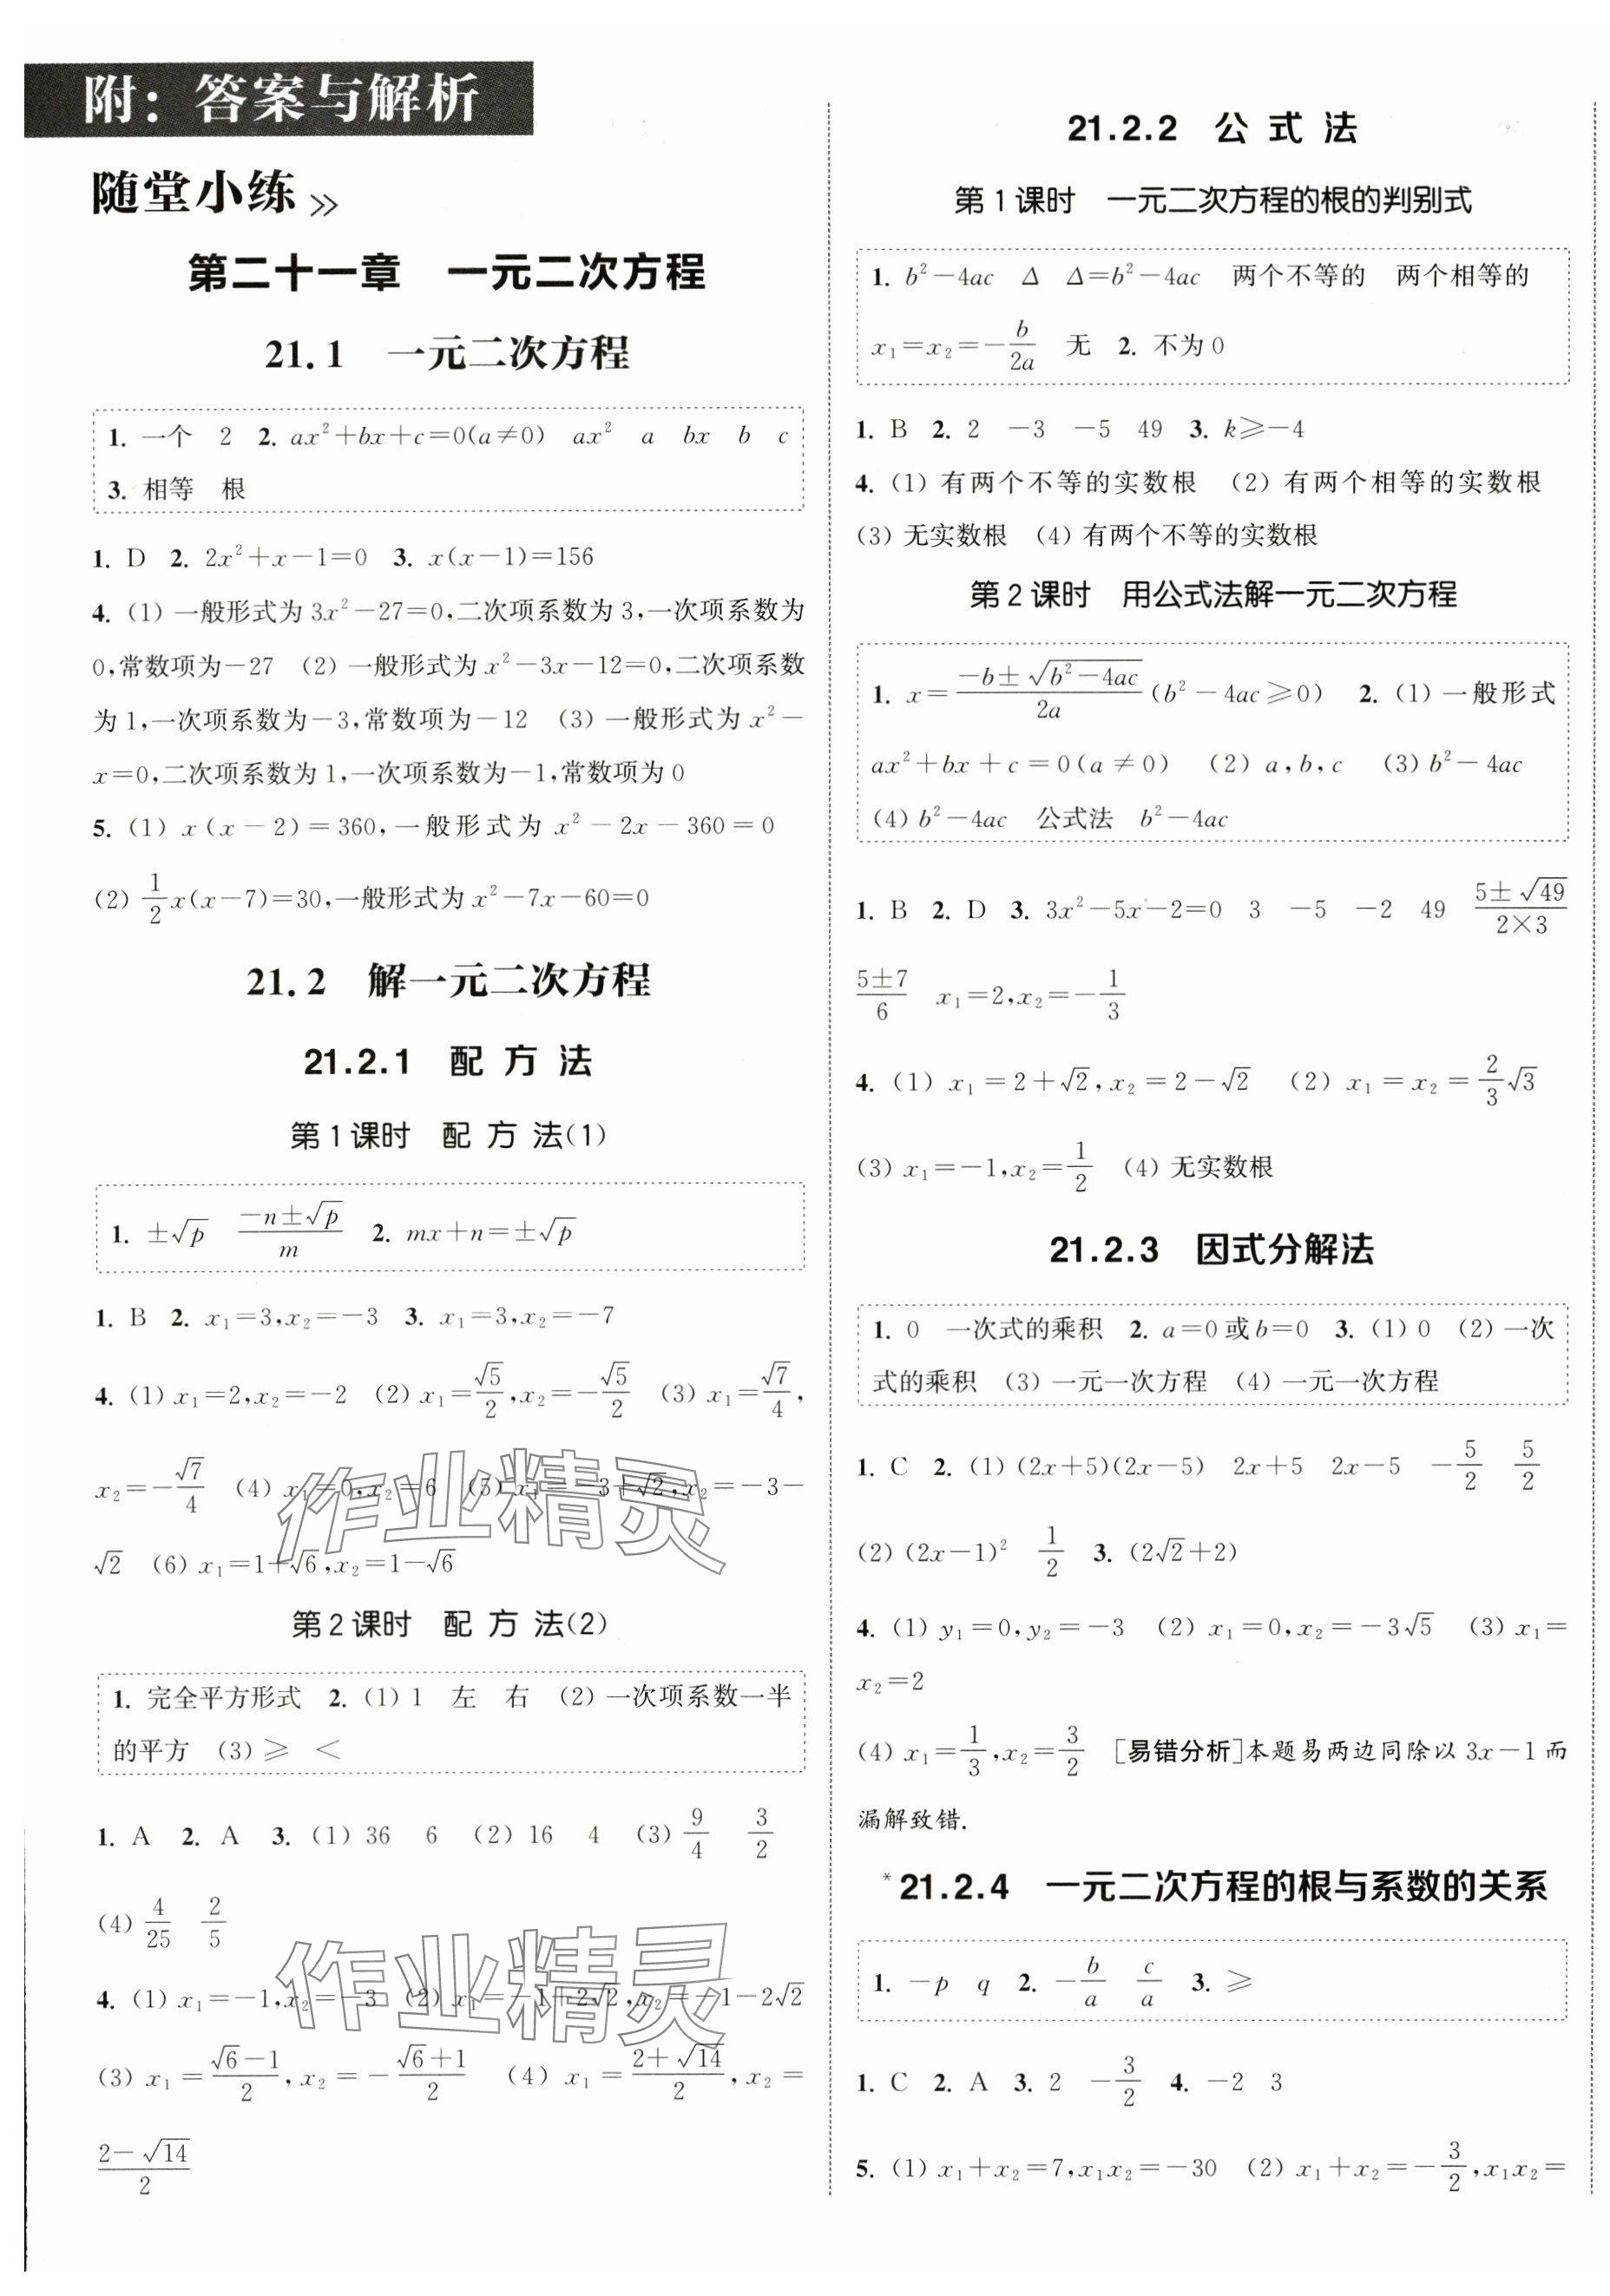 附：答案与解析
随堂小练 »
第二十一章 一元二次方程
21.1 一元二次方程
1. 一个 2 2. ax²+bx+c=0(a≠0) ax² a bx b c
3. 相等 根
1. D 2. 2x²+x−1=0 3. x(x−1)=156
4. (1) 一般形式为 3x²−27=0,二次项系数为 3,一次项系数为
0,常数项为−27 (2) 一般形式为 x²−3x−12=0,二次项系数
为 1,一次项系数为−3,常数项为−12 (3) 一般形式为 x²−
x=0,二次项系数为 1,一次项系数为−1,常数项为 0
5. (1) x(x−2)=360,一般形式为 x²−2x−360=0
(2) 1/2 x(x−7)=30,一般形式为 x²−7x−60=0
21.2 解一元二次方程
21.2.1 配方法
第 1 课时 配方法(1)
1. ±√p (−n±√p)/m 2. mx+n=±√p
1. B 2. x₁=3,x₂=−3 3. x₁=3,x₂=−7
4. (1) x₁=2,x₂=−2 (2) x₁=√5/2,x₂=−√5/2 (3) x₁=√7/4,
x₂=−√7/4 (4) x₁=0,x₂=6 (5) x₁=−3+√2,x₂=−3−
√2 (6) x₁=1+√6,x₂=1−√6
第 2 课时 配方法(2)
1. 完全平方形式 2. (1) 1 左 右 (2) 一次项系数一半
的平方 (3) ≥ <
1. A 2. A 3. (1) 36 6 (2) 16 4 (3) 9/4 3/2
(4) 4/25 2/5
4. (1) x₁=−1,x₂=−3 (2) x₁=−1+2√2,x₂=−1−2√2
(3) x₁=(√6−1)/2,x₂=−(√6+1)/2 (4) x₁=(2+√14)/2,x₂=
(2−√14)/2
21.2.2 公式法
第 1 课时 一元二次方程的根的判别式
1. b²−4ac Δ Δ=b²−4ac 两个不等的 两个相等的
x₁=x₂=−b/2a 无 2. 不为 0
1. B 2. 2 −3 −5 49 3. k≥−4
4. (1) 有两个不等的实数根 (2) 有两个相等的实数根
(3) 无实数根 (4) 有两个不等的实数根
第 2 课时 用公式法解一元二次方程
1. x=(−b±√(b²−4ac))/2a (b²−4ac≥0) 2. (1) 一般形式
ax²+bx+c=0(a≠0) (2) a,b,c (3) b²−4ac
(4) b²−4ac 公式法 b²−4ac
1. B 2. D 3. 3x²−5x−2=0 3 −5 −2 49 (5±√49)/(2×3)
(5±7)/6 x₁=2,x₂=−1/3
4. (1) x₁=2+√2,x₂=2−√2 (2) x₁=x₂=2/3√3
(3) x₁=−1,x₂=1/2 (4) 无实数根
21.2.3 因式分解法
1. 0 一次式的乘积 2. a=0 或 b=0 3. (1) 0 (2) 一次
式的乘积 (3) 一元一次方程 (4) 一元一次方程
1. C 2. (1) (2x+5)(2x−5) 2x+5 2x−5 −5/2 5/2
(2) (2x−1)² 1/2 3. (2√2+2)
4. (1) y₁=0,y₂=−3 (2) x₁=0,x₂=−3√5 (3) x₁=
x₂=2
(4) x₁=1/3,x₂=3/2 [易错分析]本题易两边同除以 3x−1 而
漏解致错.
*21.2.4 一元二次方程的根与系数的关系
1. −p q 2. −b/a c/a 3. ≥
1. C 2. A 3. 2 −3/2 4. −2 3
5. (1) x₁+x₂=7,x₁x₂=−30 (2) x₁+x₂=−3/2,x₁x₂=
作业精灵
作业精灵